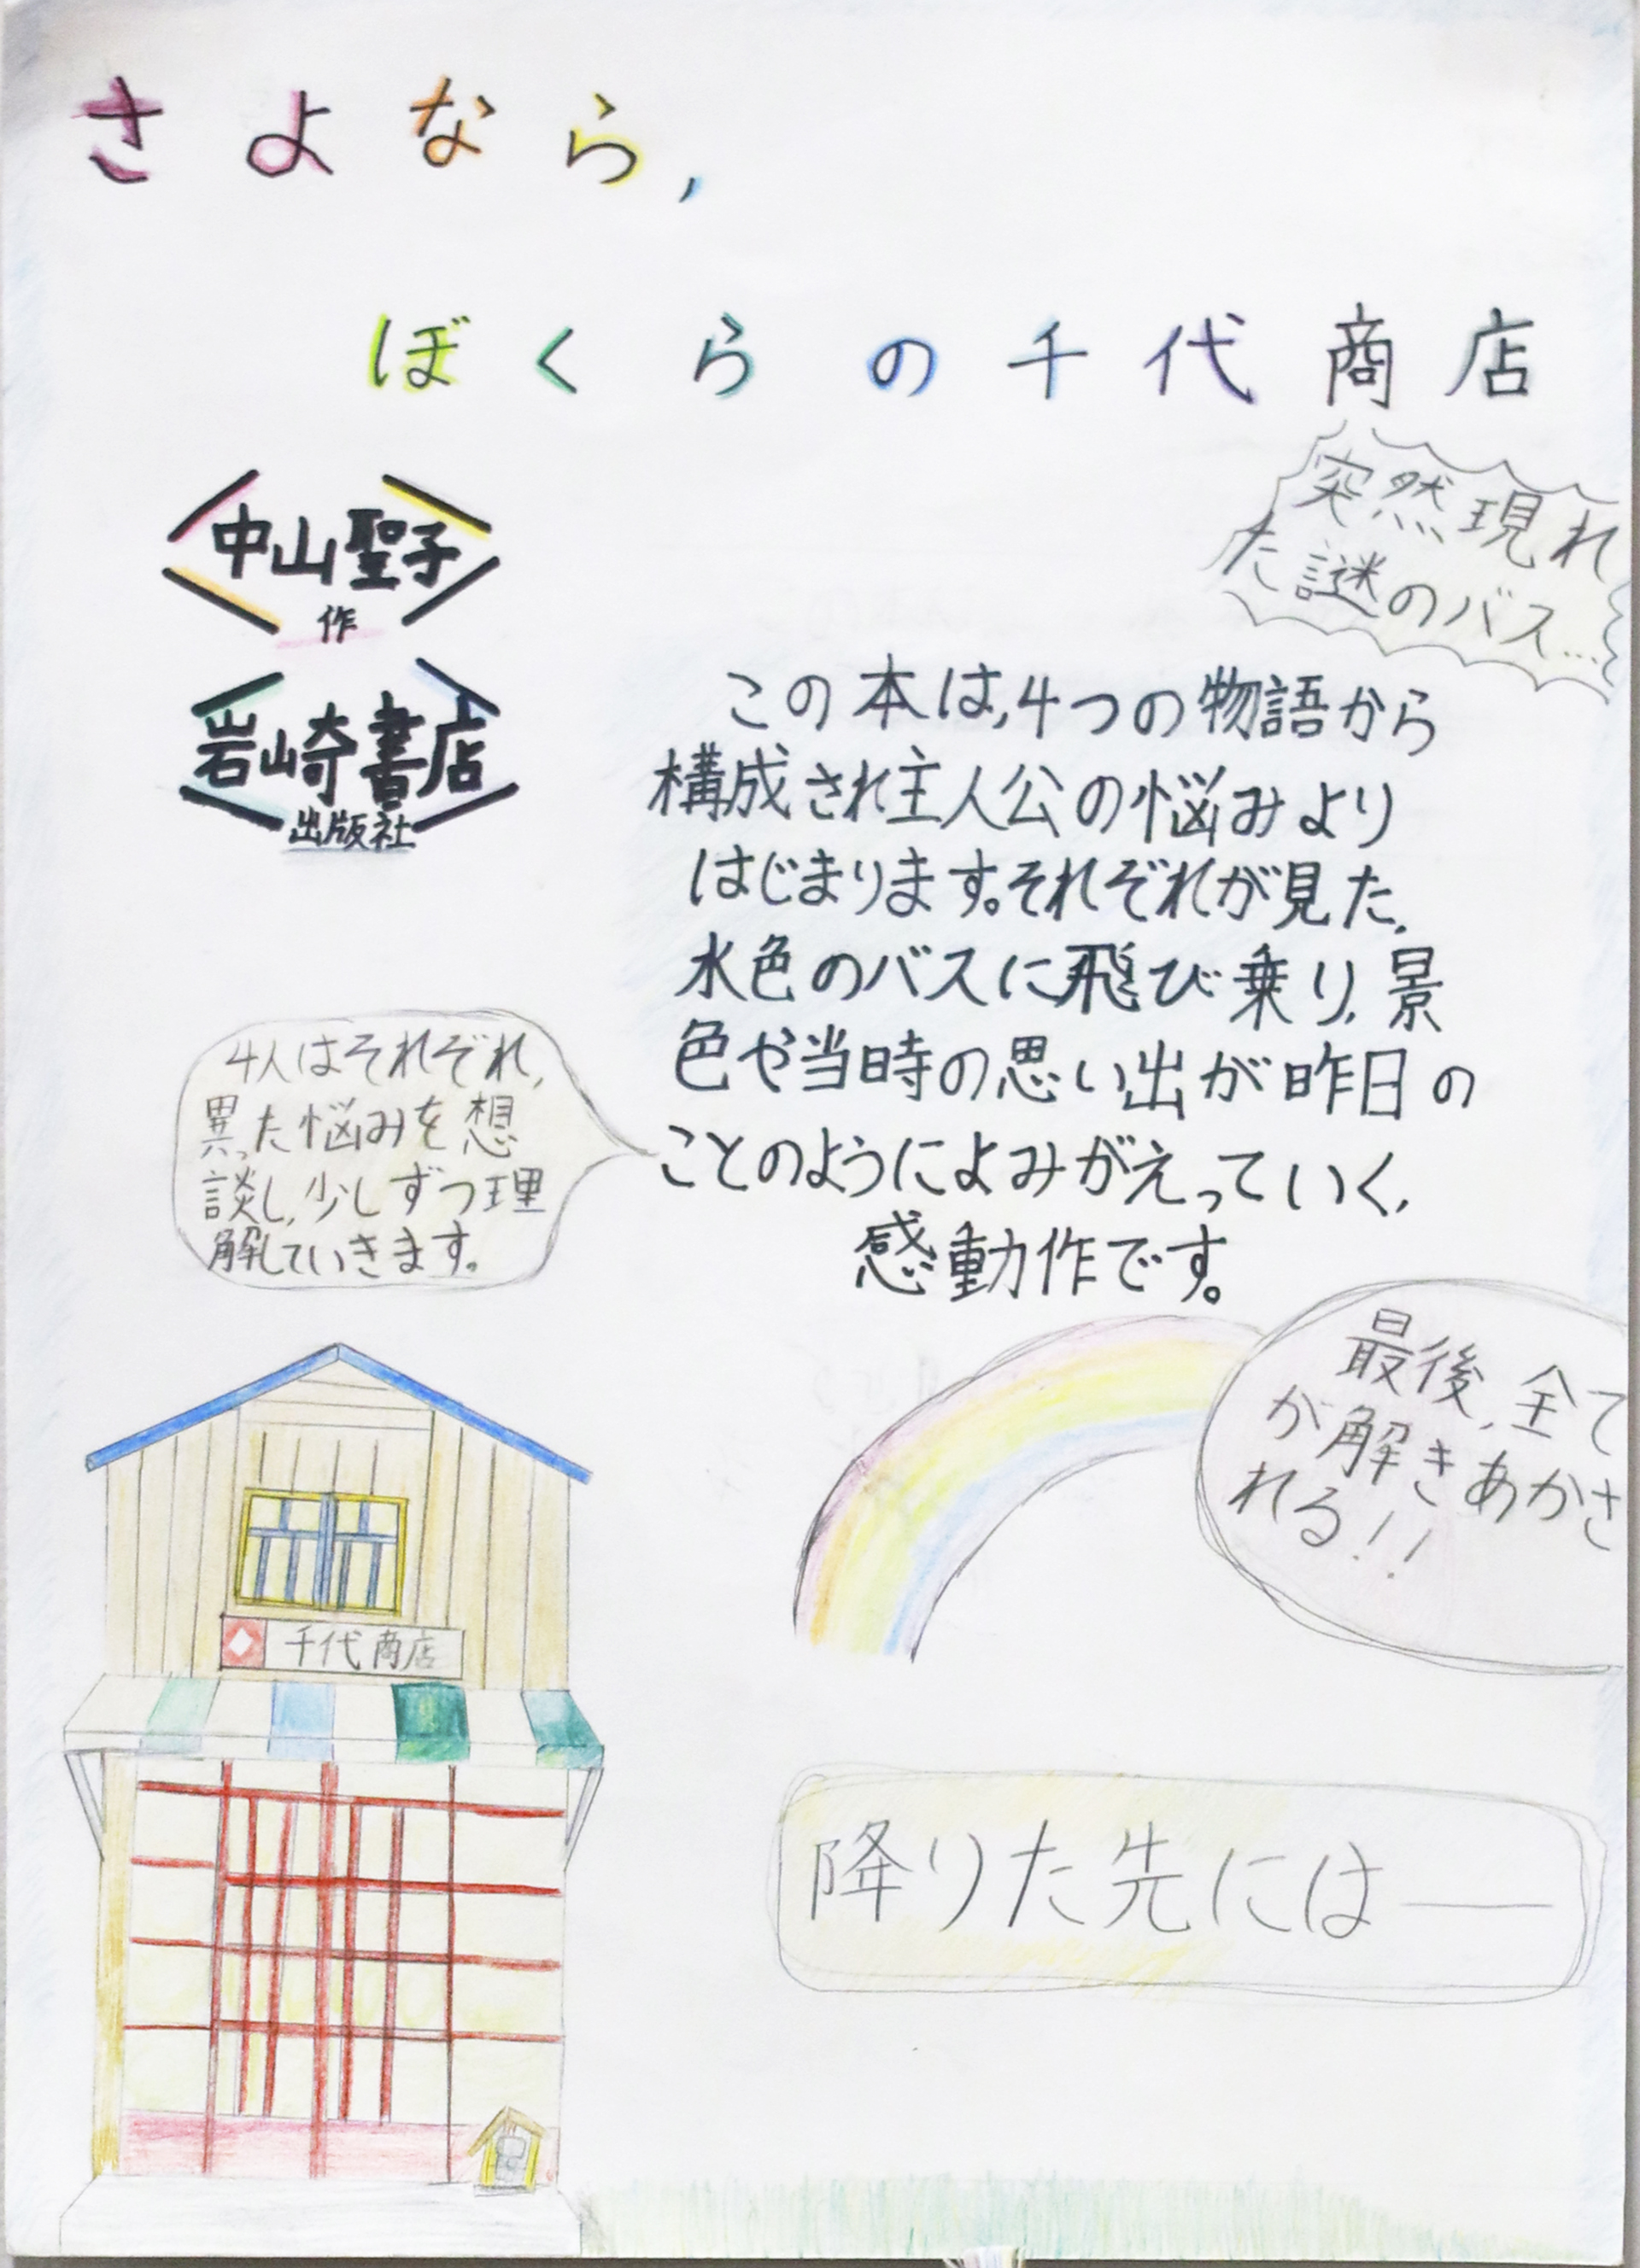 さよなら,
ぼくらの千代商店
中山聖子
作
岩崎書店
出版社
突然現れ
た謎のバス…
この本は,4つの物語から
構成され主人公の悩みより
はじまります。それぞれが見た,
水色のバスに飛び乗り,景
色や当時の思い出が昨日の
ことのようによみがえっていく,
感動作です。
4人はそれぞれ,
異った悩みを想
談し,少しずつ理
解していきます。
最後,全て
が解きあかさ
れる!!
千代商店
降りた先には――